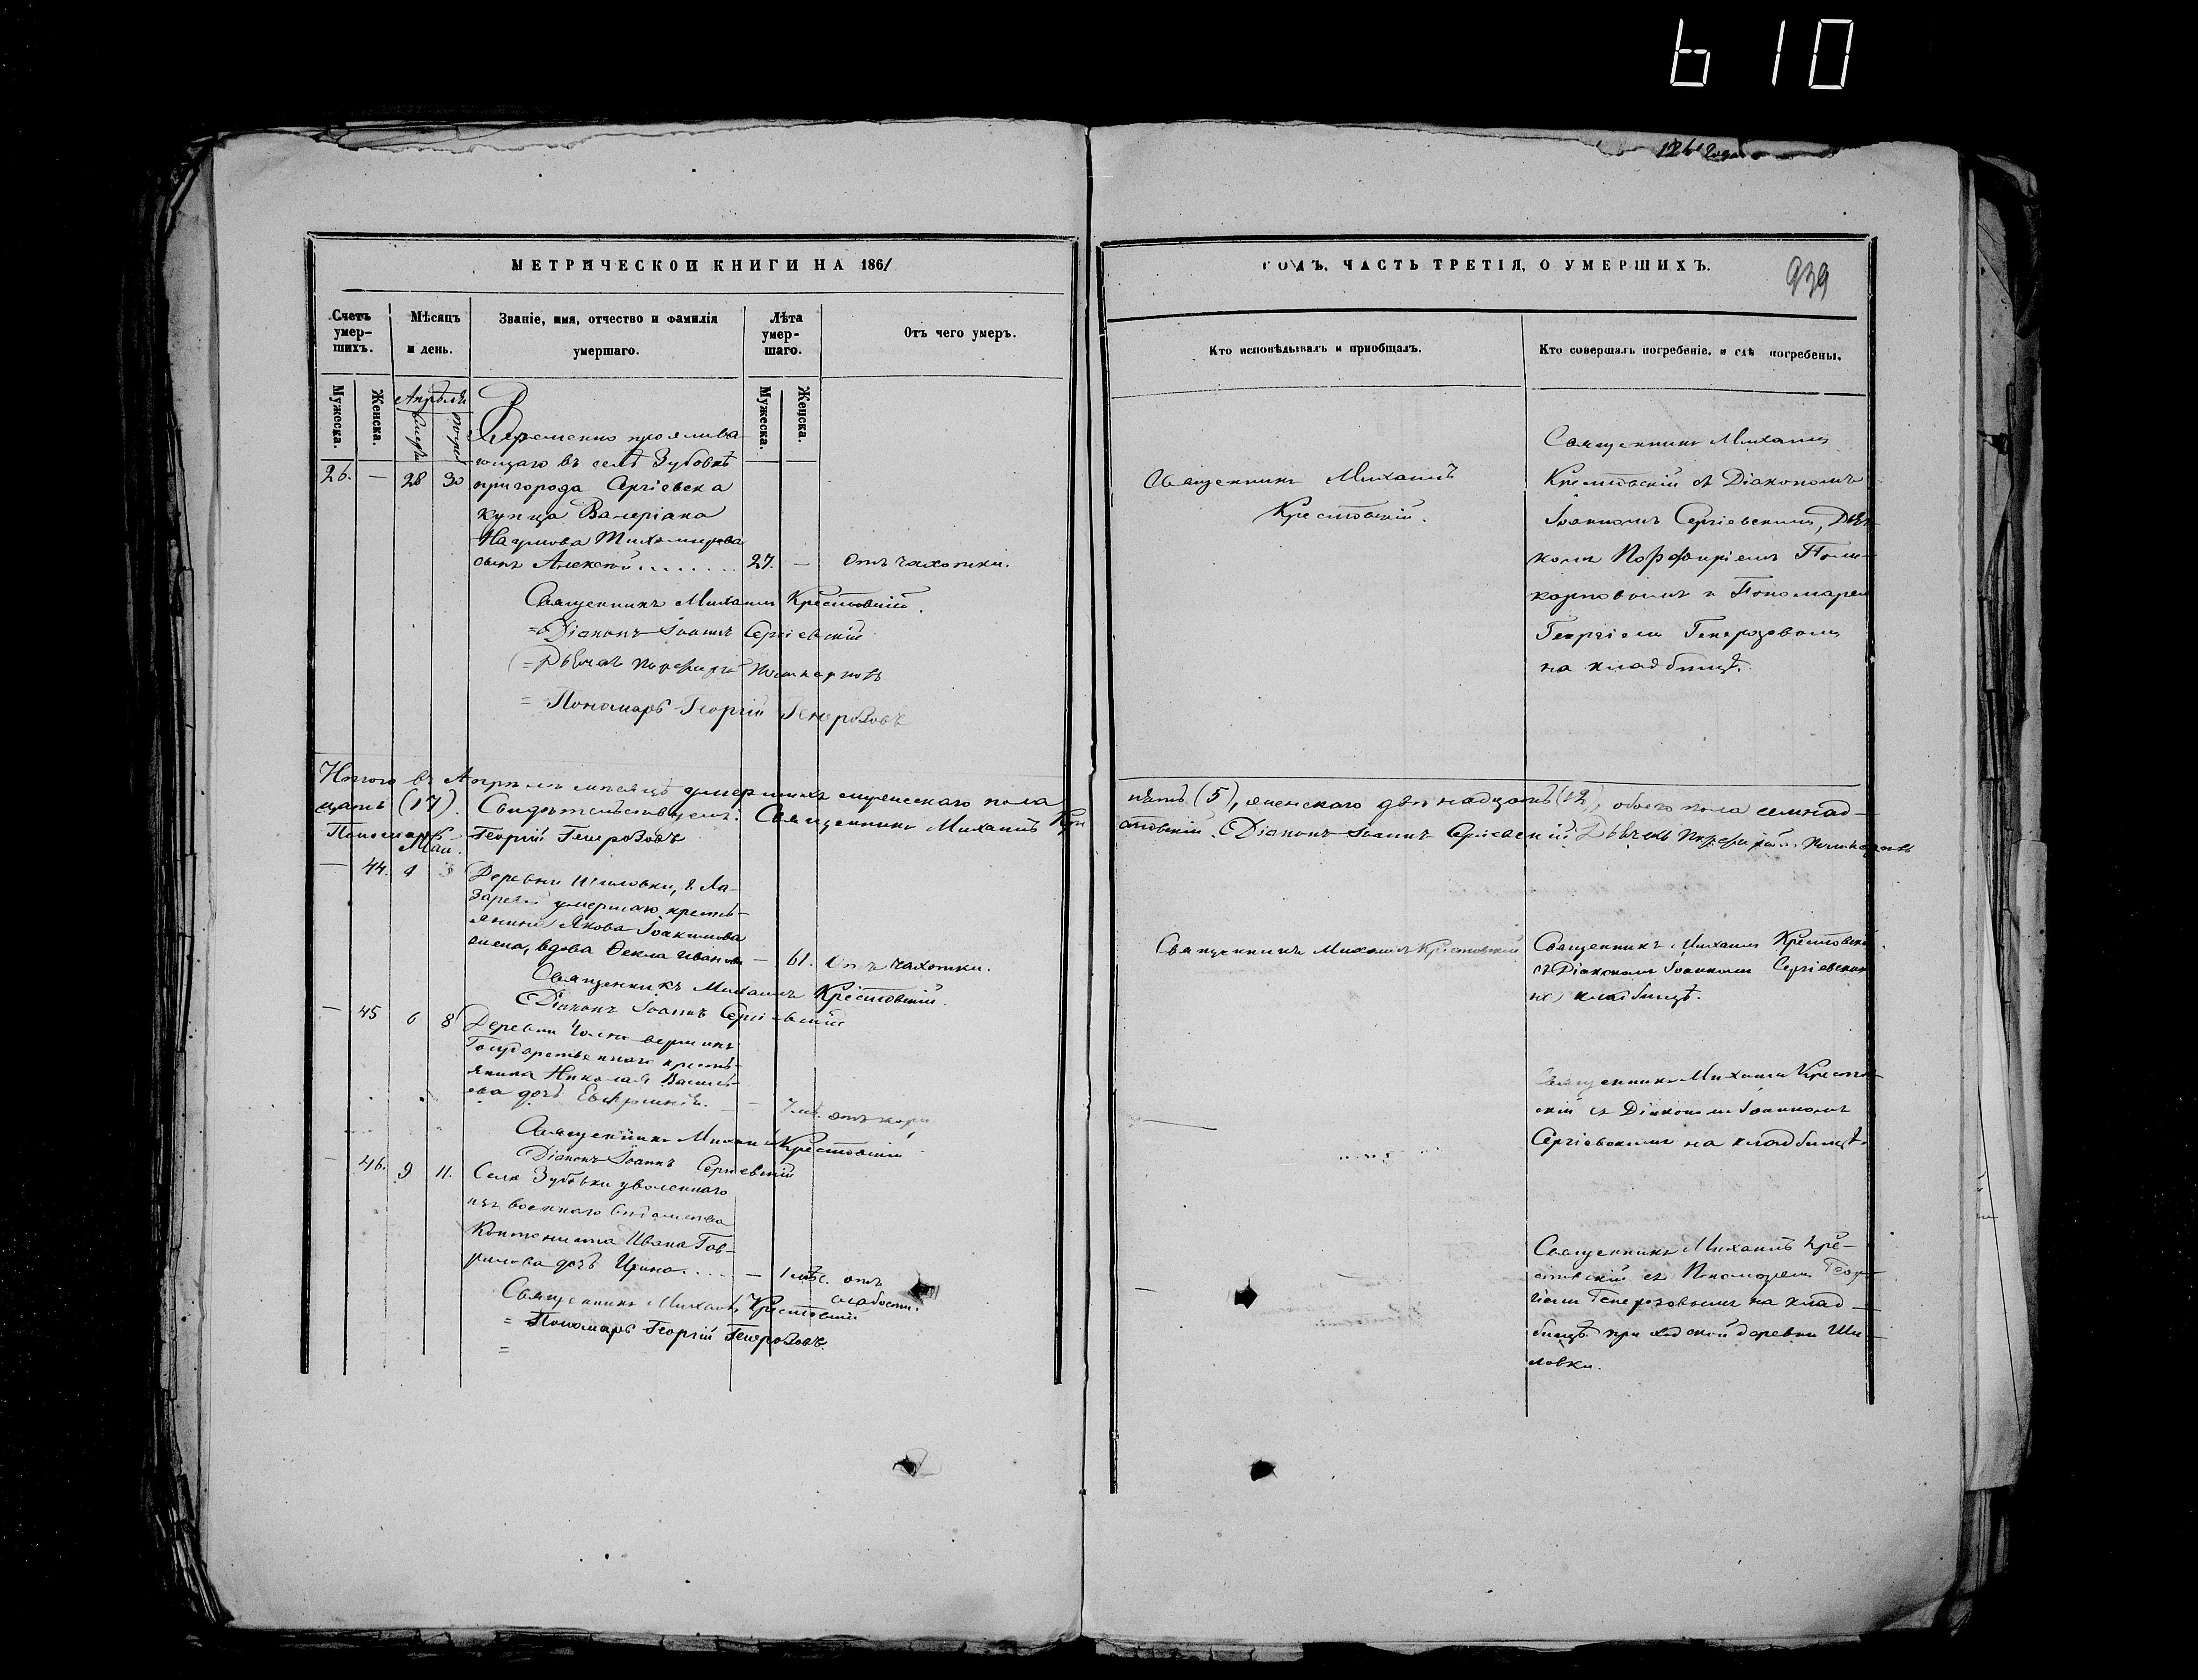 610
МЕТРИЧЕСКОЙ КНИГИ НА 1861
ГОДЪ, ЧАСТЬ ТРЕТІЯ, О УМЕРШИХЪ.
939
Счетъ умер-шихъ.
Мѣсяцъ и день.
Званіе, имя, отчество и фамилія умершаго.
Лѣта умер-шаго.
Отъ чего умеръ.
Кто исповѣдывалъ и пріобщалъ.
Кто совершалъ погребеніе, и гдѣ погребены.
Мужеска.
Женска.
Апрѣль
Мужеска.
Женска.
Временно прожива-
ющаго въ селѣ Зубовкѣ
26. — 28 30 пригорода Сергіевска
купца Валеріана
Наумова Тихомирова
сынъ Алексѣй........ 27. — отъ чахотки.
Священникъ Михаилъ Крестовскій.
Діаконъ Іоаннъ Сергіевскій
Дьячекъ Порфирій Поликарповъ
Пономарь Георгій Генерозовъ
Священникъ Михаилъ
Крестовскій.
Священникъ Михаилъ
Крестовскій съ Діакономъ
Іоанномъ Сергіевскимъ, Дьяч-
комъ Порфиріемъ Поли-
карповымъ и Пономаремъ
Георгіемъ Генерозовымъ
на кладбищѣ.
Итого въ Апрѣлѣ мѣсяцѣ умершихъ мужескаго пола
пять (5), женскаго двѣнадцать (12), обоего пола семнад-
цать (17). Свидѣтельствуемъ: Священникъ Михаилъ Кре
стовскій. Діаконъ Іоаннъ Сергіевскій Дьячекъ Порфирій Поликарповъ
Пономарь Георгій Генерозовъ
Маи.
— 44. 1 3 Деревни Шиловки,
умершаго кресть-
янина Якова Іоакимова
жена, вдова Ѳекла Иванова — 61. Отъ чахотки.
Священникъ Михаилъ Крестовскій.
Діаконъ Іоаннъ Сергіевскій
Священникъ Михаилъ Крестовскій
Священникъ Михаилъ Крестовскій
съ Діакономъ Іоанномъ Сергіевскимъ
на кладбищѣ.
— 45 6 8 Деревни
Государственнаго кресть-
янина Николая Василь-
ева дочь — отъ кори
Священникъ Михаилъ Крестовскій
Діаконъ Іоаннъ Сергіевскій
Священникъ Михаилъ Крестов-
скій съ Діакономъ Іоанномъ
Сергіевскимъ на кладбищѣ.
— 46. 9 11. Села Зубовки уволеннаго
изъ военнаго вѣдомства
Кантониста Ивана Гав-
рилова дочь Ирина.... — 1 мѣс. отъ
слабости.
Священникъ Михаилъ Крестовскій
Пономарь Георгій Генерозовъ
Священникъ Михаилъ Кре-
стовскій съ Пономаремъ Геор-
гіемъ Генерозовымъ на клад-
бищѣ приходской деревни Ши-
ловки.